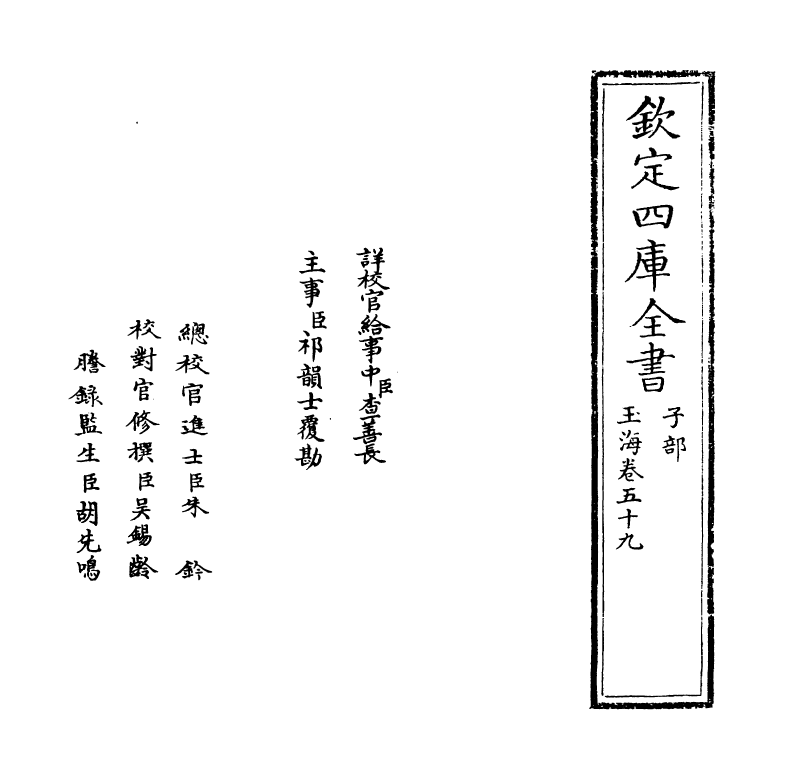 欽定四庫全書
子部
玉海卷五十九
詳校官給事中臣查善長
主事臣祁韻士覆勘
總校官進士臣朱鈐
校對官修撰臣吳錫齡
謄錄監生臣胡先鳴